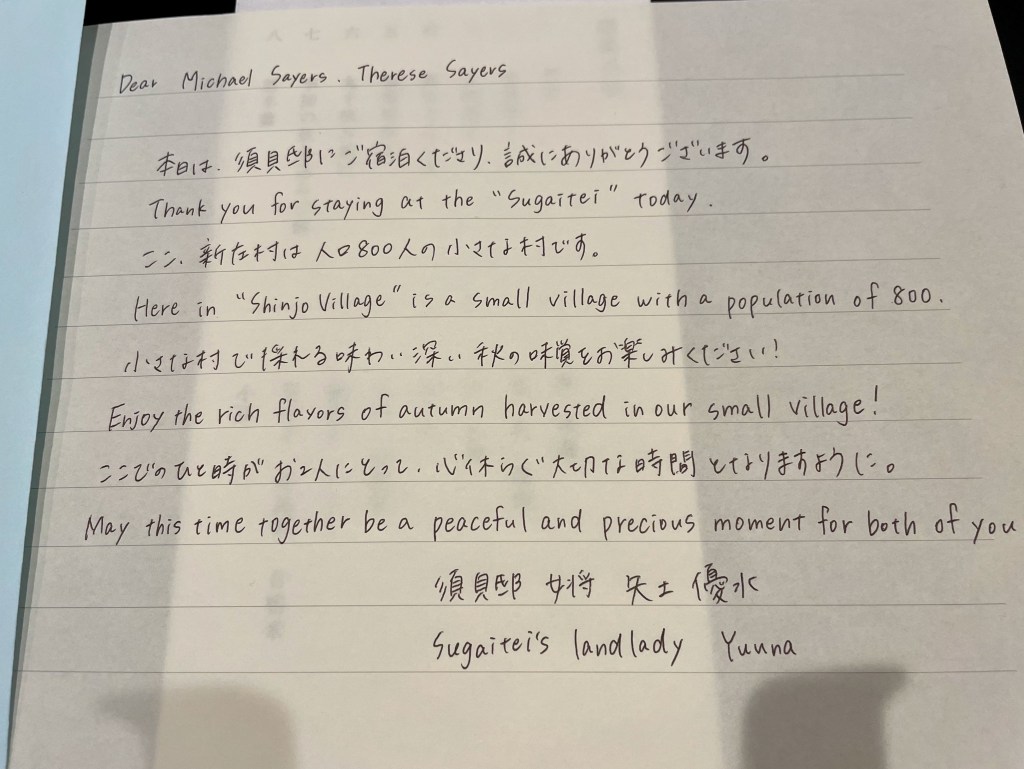 Dear Michael Sayers. Therese Sayers
本日は、須貝邸にご宿泊くださり、誠にありがとうございます。
Thank you for staying at the "Sugaitei" today.
ここ、新庄村は人口800人の小さな村です。
Here in "Shinjo Village" is a small village with a population of 800.
小さな村で採れる味わい深い秋の味覚をお楽しみください!
Enjoy the rich flavors of autumn harvested in our small village!
ここでのひと時がお2人にとって、心休らぐ大切な時間となりますように。
May this time together be a peaceful and precious moment for both of you
須貝邸 女将 矢土 優水
Sugaitei's landlady Yuuna